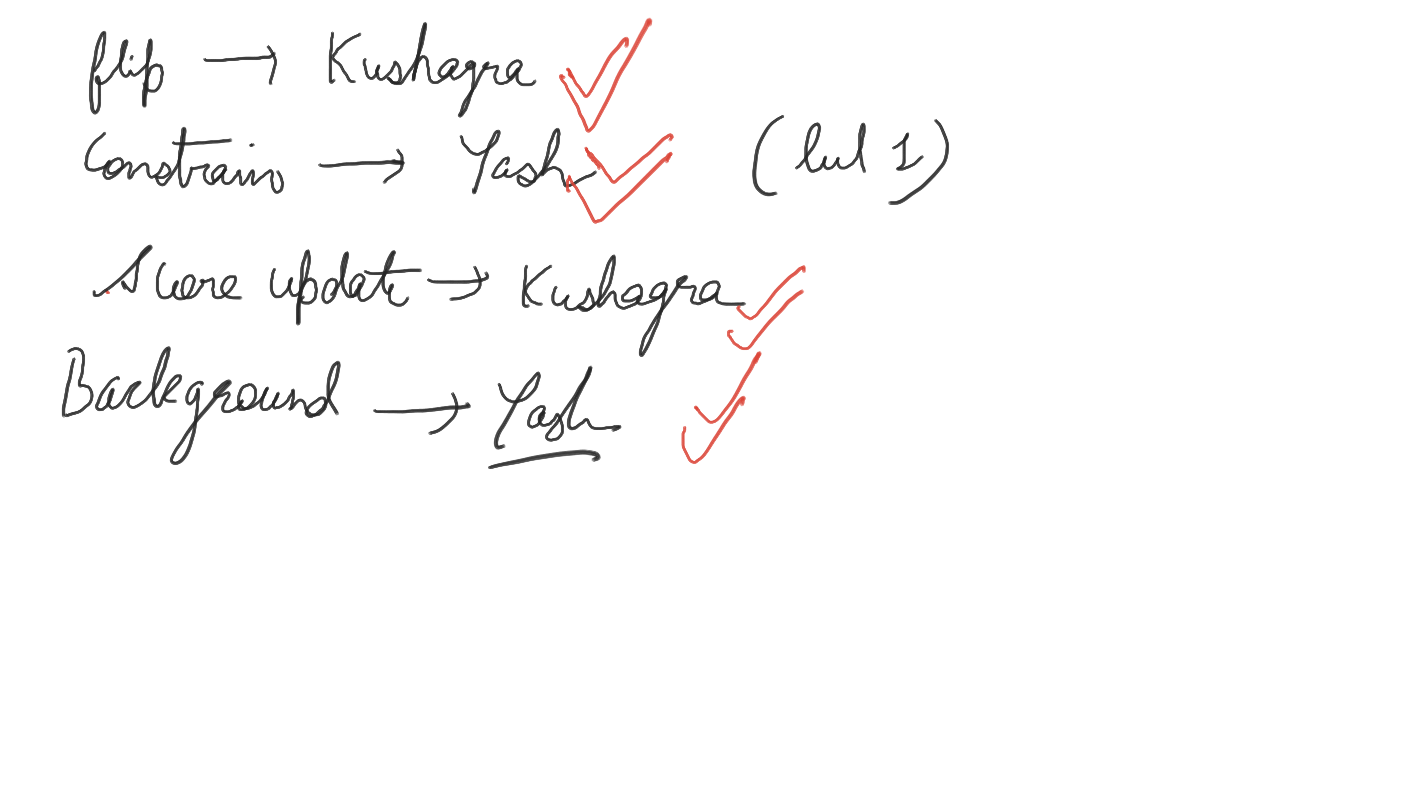 flip → Kushagra
Constrain → Yash (lul 1)
Score update → Kushagra
Background → Yash